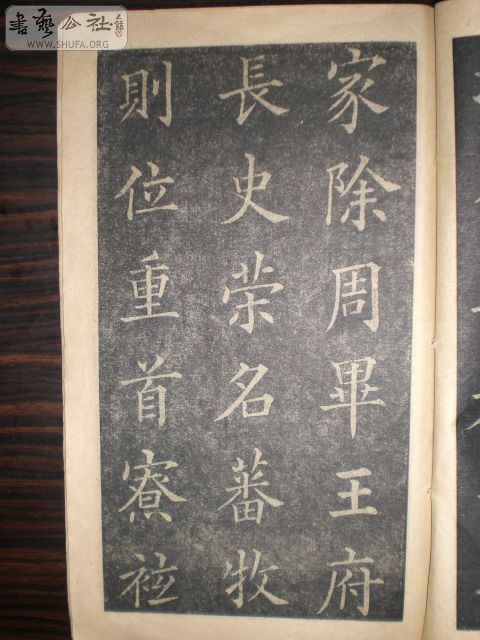 書藝公社
WWW.SHUFA.ORG
家除周畢王府
長史荣名蕃牧
則位重首寮袨